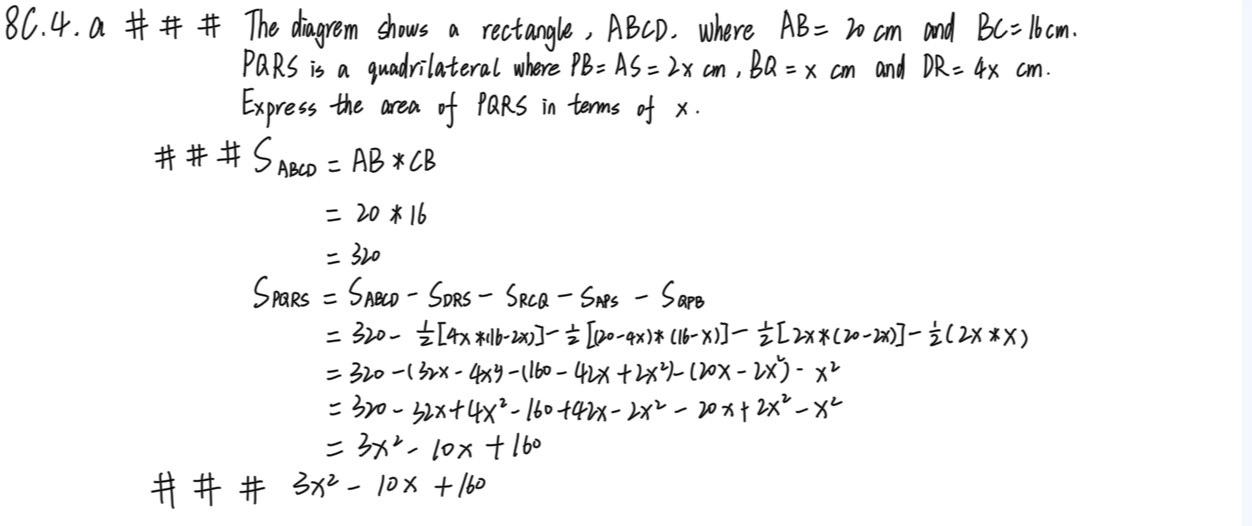 8C.4.a # # # The diagrem shows a rectangle, ABCD. where AB= 20 cm and BC=16cm.
PQRS is a quadrilateral where PB=AS=2x cm, BQ=x cm and DR=4x cm.
Express the area of PQRS in terms of x.
# # # S_ABCD = AB * CB
= 20 * 16
= 320
S_PQRS = S_ABCD - S_DRS - S_RCQ - S_APS - S_QPB
= 320 - ½[4x*(16-2x)] - ½[(20-4x)*(16-x)] - ½[2x*(20-2x)] - ½(2x*x)
= 320 - (32x - 4x²) - (160 - 42x + 2x²) - (20x - 2x²) - x²
= 320 - 32x + 4x² - 160 + 42x - 2x² - 20x + 2x² - x²
= 3x² - 10x + 160
# # # 3x² - 10x + 160